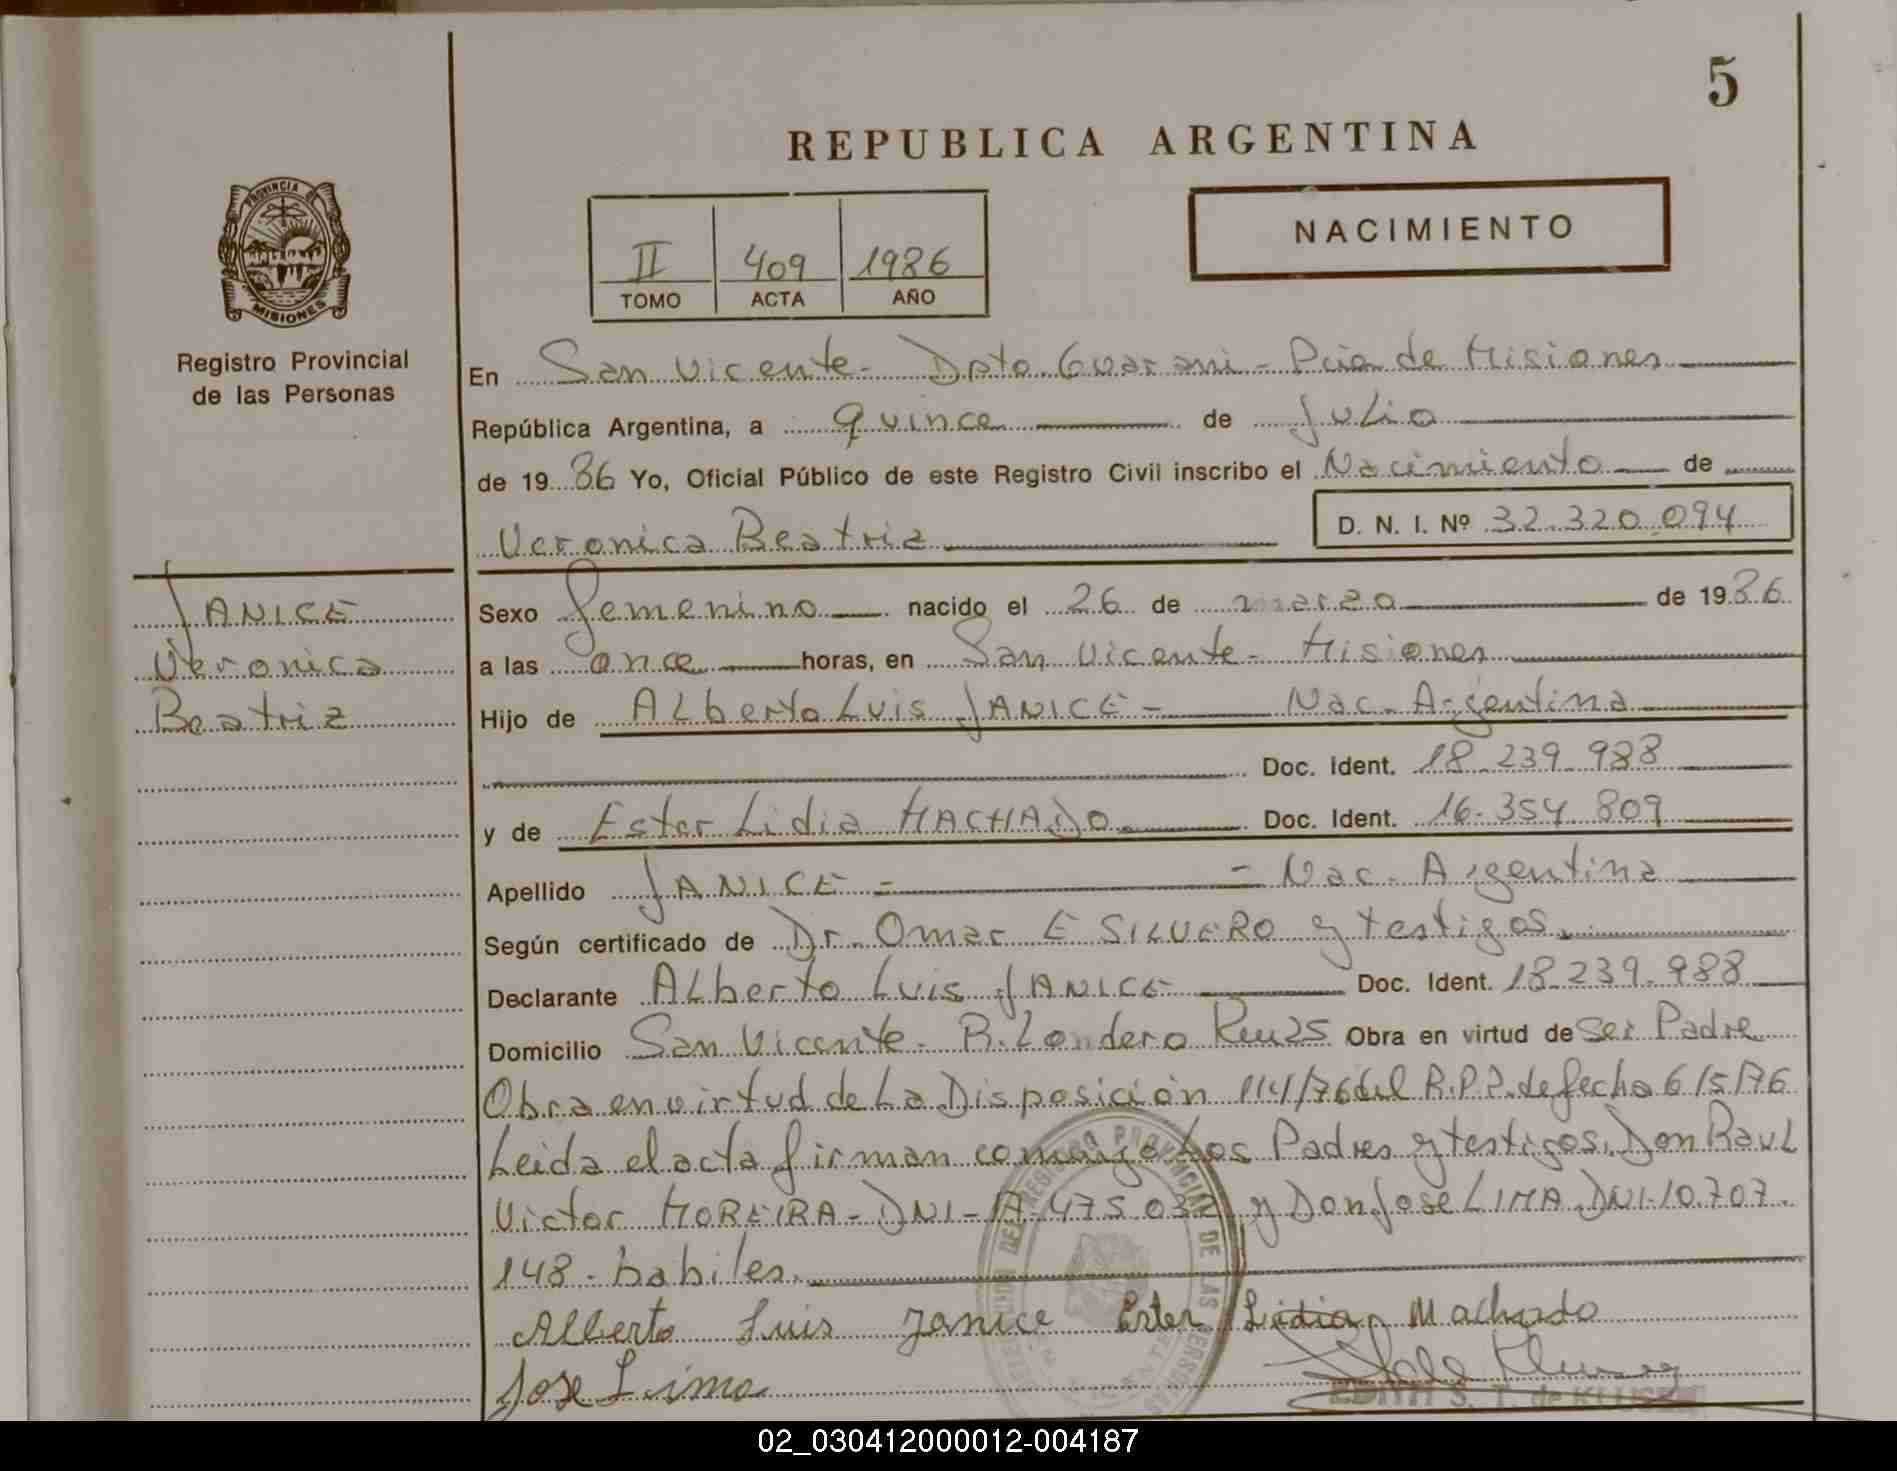 5
REPUBLICA ARGENTINA
PROVINCIA D
MISIONES
Registro Provincial
de las Personas
II 409 1986
TOMO ACTA AÑO
NACIMIENTO
En San Vicente - Dpto Guarani - Pcia de Misiones
República Argentina, a quince de Julio
de 1986 Yo, Oficial Público de este Registro Civil inscribo el Nacimiento de
Veronica Beatriz
D. N. I. Nº 32.320.094
JANICE
Veronica
Beatriz
Sexo femenino nacido el 26 de marzo de 1986
a las once horas, en San Vicente - Misiones
Hijo de Alberto Luis JANICE - Nac. Argentina
Doc. Ident. 18.239.988
y de Ester Lidia MACHADO. Doc. Ident. 16.354.809
Apellido JANICE - - Nac. Argentina
Según certificado de Dr. Omar E SILVERO y testigos.
Declarante Alberto Luis JANICE Doc. Ident. 18.239.988
Domicilio San Vicente - B. Londero Obra en virtud de Ser Padre
Obra en virtud de La Disposición 114/76 del R.P.P. de fecha 6/5/76
Leida el acta firman conmigo Los Padres y testigos. Don Raul
Victor MOREIRA - DNI - 475.032 y Don Jose LIMA DNI-10.707.
148 - habiles.
Alberto Luis Janice Ester Lidia Machado
Jose Lima
EDITH S. T. de KLUSENER
02_030412000012-004187